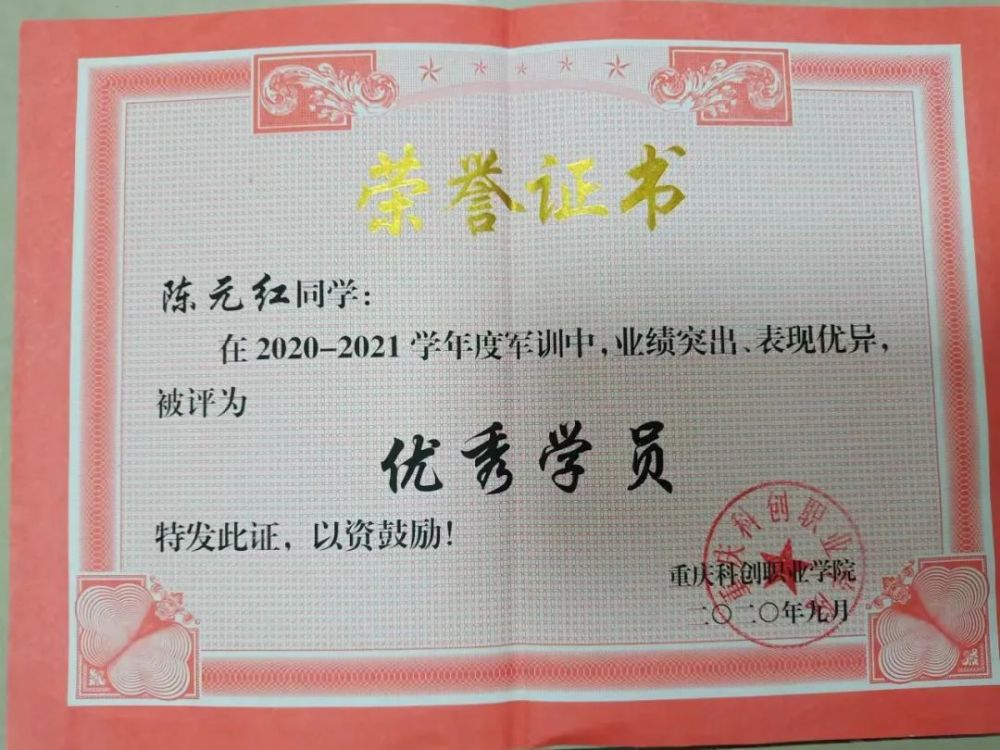 荣誉证书
陈元红同学：
在2020-2021学年度军训中，业绩突出、表现优异，
被评为
优秀学员
特发此证，以资鼓励！
重庆科创职业学院
重庆科创职业学院
二〇二〇年九月